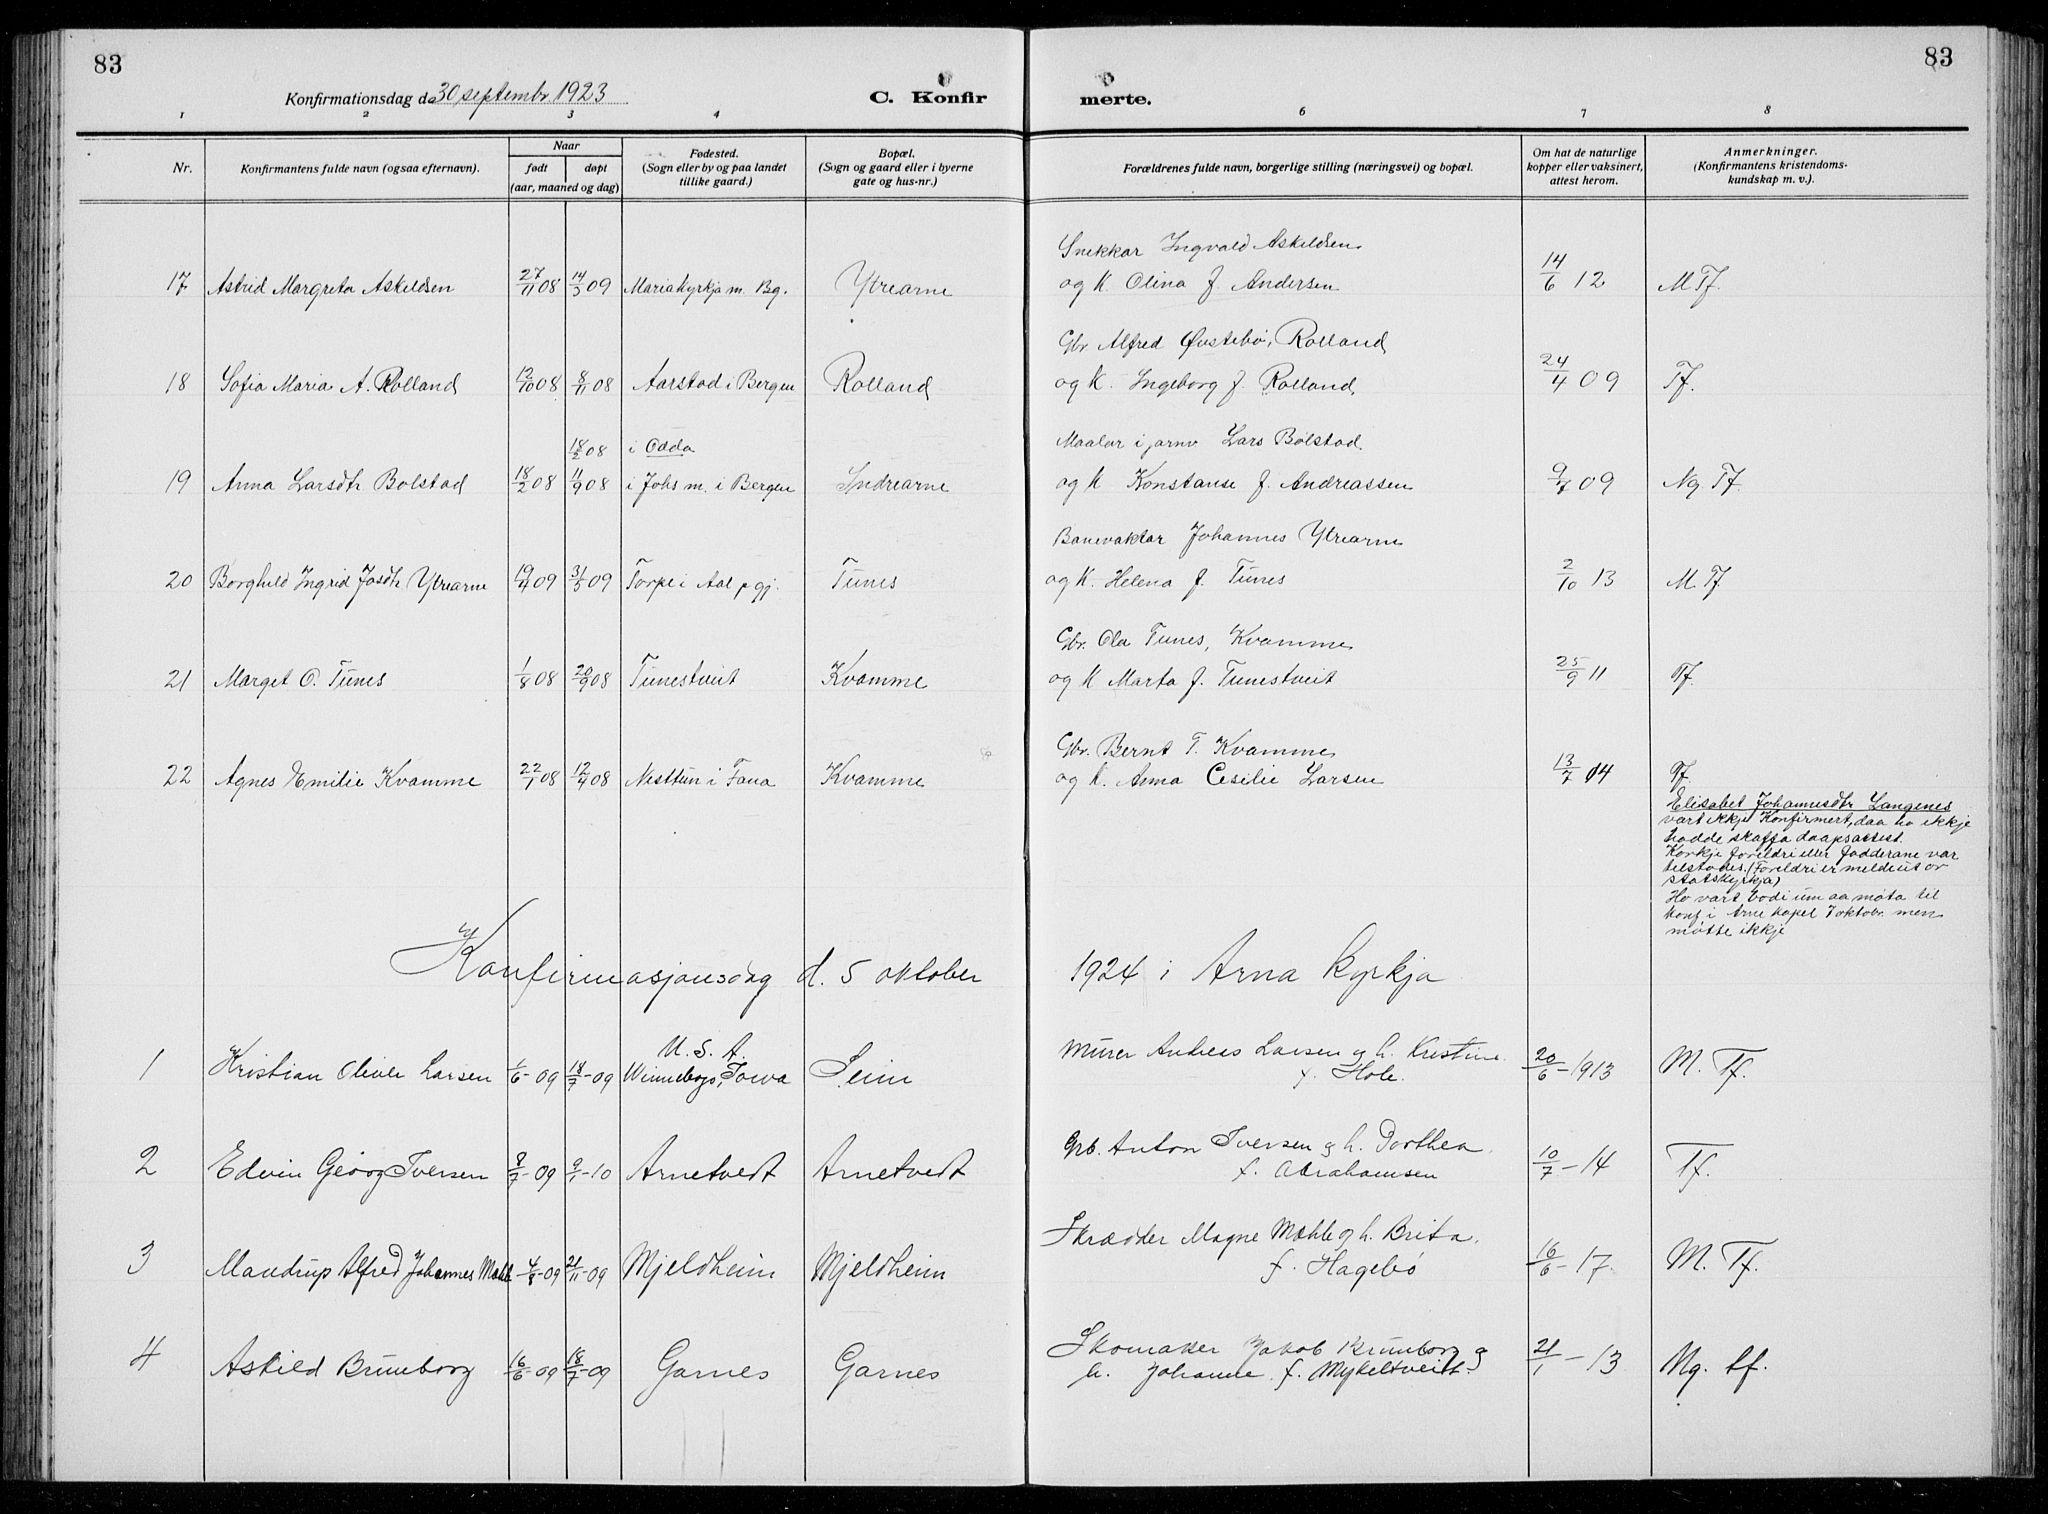 83
83
Konfirmationsdag d. 30 septembr 1923
C. Konfir
merte.
1 2 3 4 6 7 8
Nr.
Konfirmantens fulde navn (ogsaa efternavn).
Naar
født
døpt
(aar, maaned og dag)
Fødested.
(Sogn eller by og paa landet
tillike gaard.)
Bopæl.
(Sogn og gaard eller i byerne
gate og hus-nr.)
Forældrenes fulde navn, borgerlige stilling (næringsvei) og bopæl.
Om hat de naturlige
kopper eller vaksinert,
attest herom.
Anmerkninger.
(Konfirmantens kristendoms-
kundskap m. v.).
Snekkar Ingvald Askildsen
17 Astrid Margreta Askildsen 27/11 08 14/3 09 Mariakyrkja m. Bg. Ytrearne og K. Olina f. Andersen 14/6 12 M Tf.
Gbr. Alfred Øvstebø, Rolland
18 Sofia Maria A. Rolland 12/10 08 8/11 08 Aarstad i Bergen Rolland og K. Ingeborg f. Rolland. 24/4 09 Tf.
18/2 08 i Odda Maalar i jarnv Lars Bolstad
19 Anna Larsdtr Bolstad 18/2 08 11/9 08 i Johs m. i Bergen Indrearne og K Konstanse f. Andreassen 9/7 09 Ng. Tf.
Banevaktar Johannes Ytrearne
20 Borghild Ingrid Josdtr Ytrearne 19/4 09 31/5 09 Torpe i Aal p gj. Tunes og K. Helena f. Tunes 2/10 13 M. Tf
Gbr. Ola Tunes, Kvamme
21 Marget O. Tunes 1/8 08 20/9 08 Tunestveit Kvamme og K Marta f. Tunestveit 25/9 11 Tf.
Gbr. Bernt T. Kvamme
22 Agnes Emilie Kvamme 22/1 08 12/4 08 Nesttun i Fana Kvamme og K. Anna Cesilie Larsen 13/7 14 Tf.
Elisabet Johannesdtr Langenes
vart ikkje Konfirmert, daa ho ikkje
hadde skaffa daapsattest.
Korkje foreldri eller fadderane var
tilstades. (Foreldri er meldt ut or
statskyrkja)
Ho vart bodi um aa møta til
konf. i Arne kapel 7 oktobr. men
møtte ikkje
Konfirmasjonsdag d. 5 oktober 1924 i Arna kyrkja
1 Kristian Oliver Larsen 1/6-09 18/7-09 U. S. A. Winneborg, Iowa Seim Murer Andreas Larsen og h. Kristine
f. Hole. 20/6-1913 M. Tf.
2 Edvin Georg Iversen 8/7-09 9/1-10 Arnetvedt Arnetvedt Grb. Anton Iversen og h. Dorthea
f. Abrahamsen 10/7-14 Tf.
3 Mandrup Alfred Johannes Mæhle 4/8-09 21/11-09 Mjeldheim Mjeldheim Skrædder Magne Mæhle og h. Brita
f. Hagebø 16/6-17. M. Tf.
4 Askild Brunborg 16/6-09 18/7-09 Garnes Garnes Skomaker Jakob Brunborg og
h. Johanne f. Mykeltveidt. 21/1-13 Mg. tf.